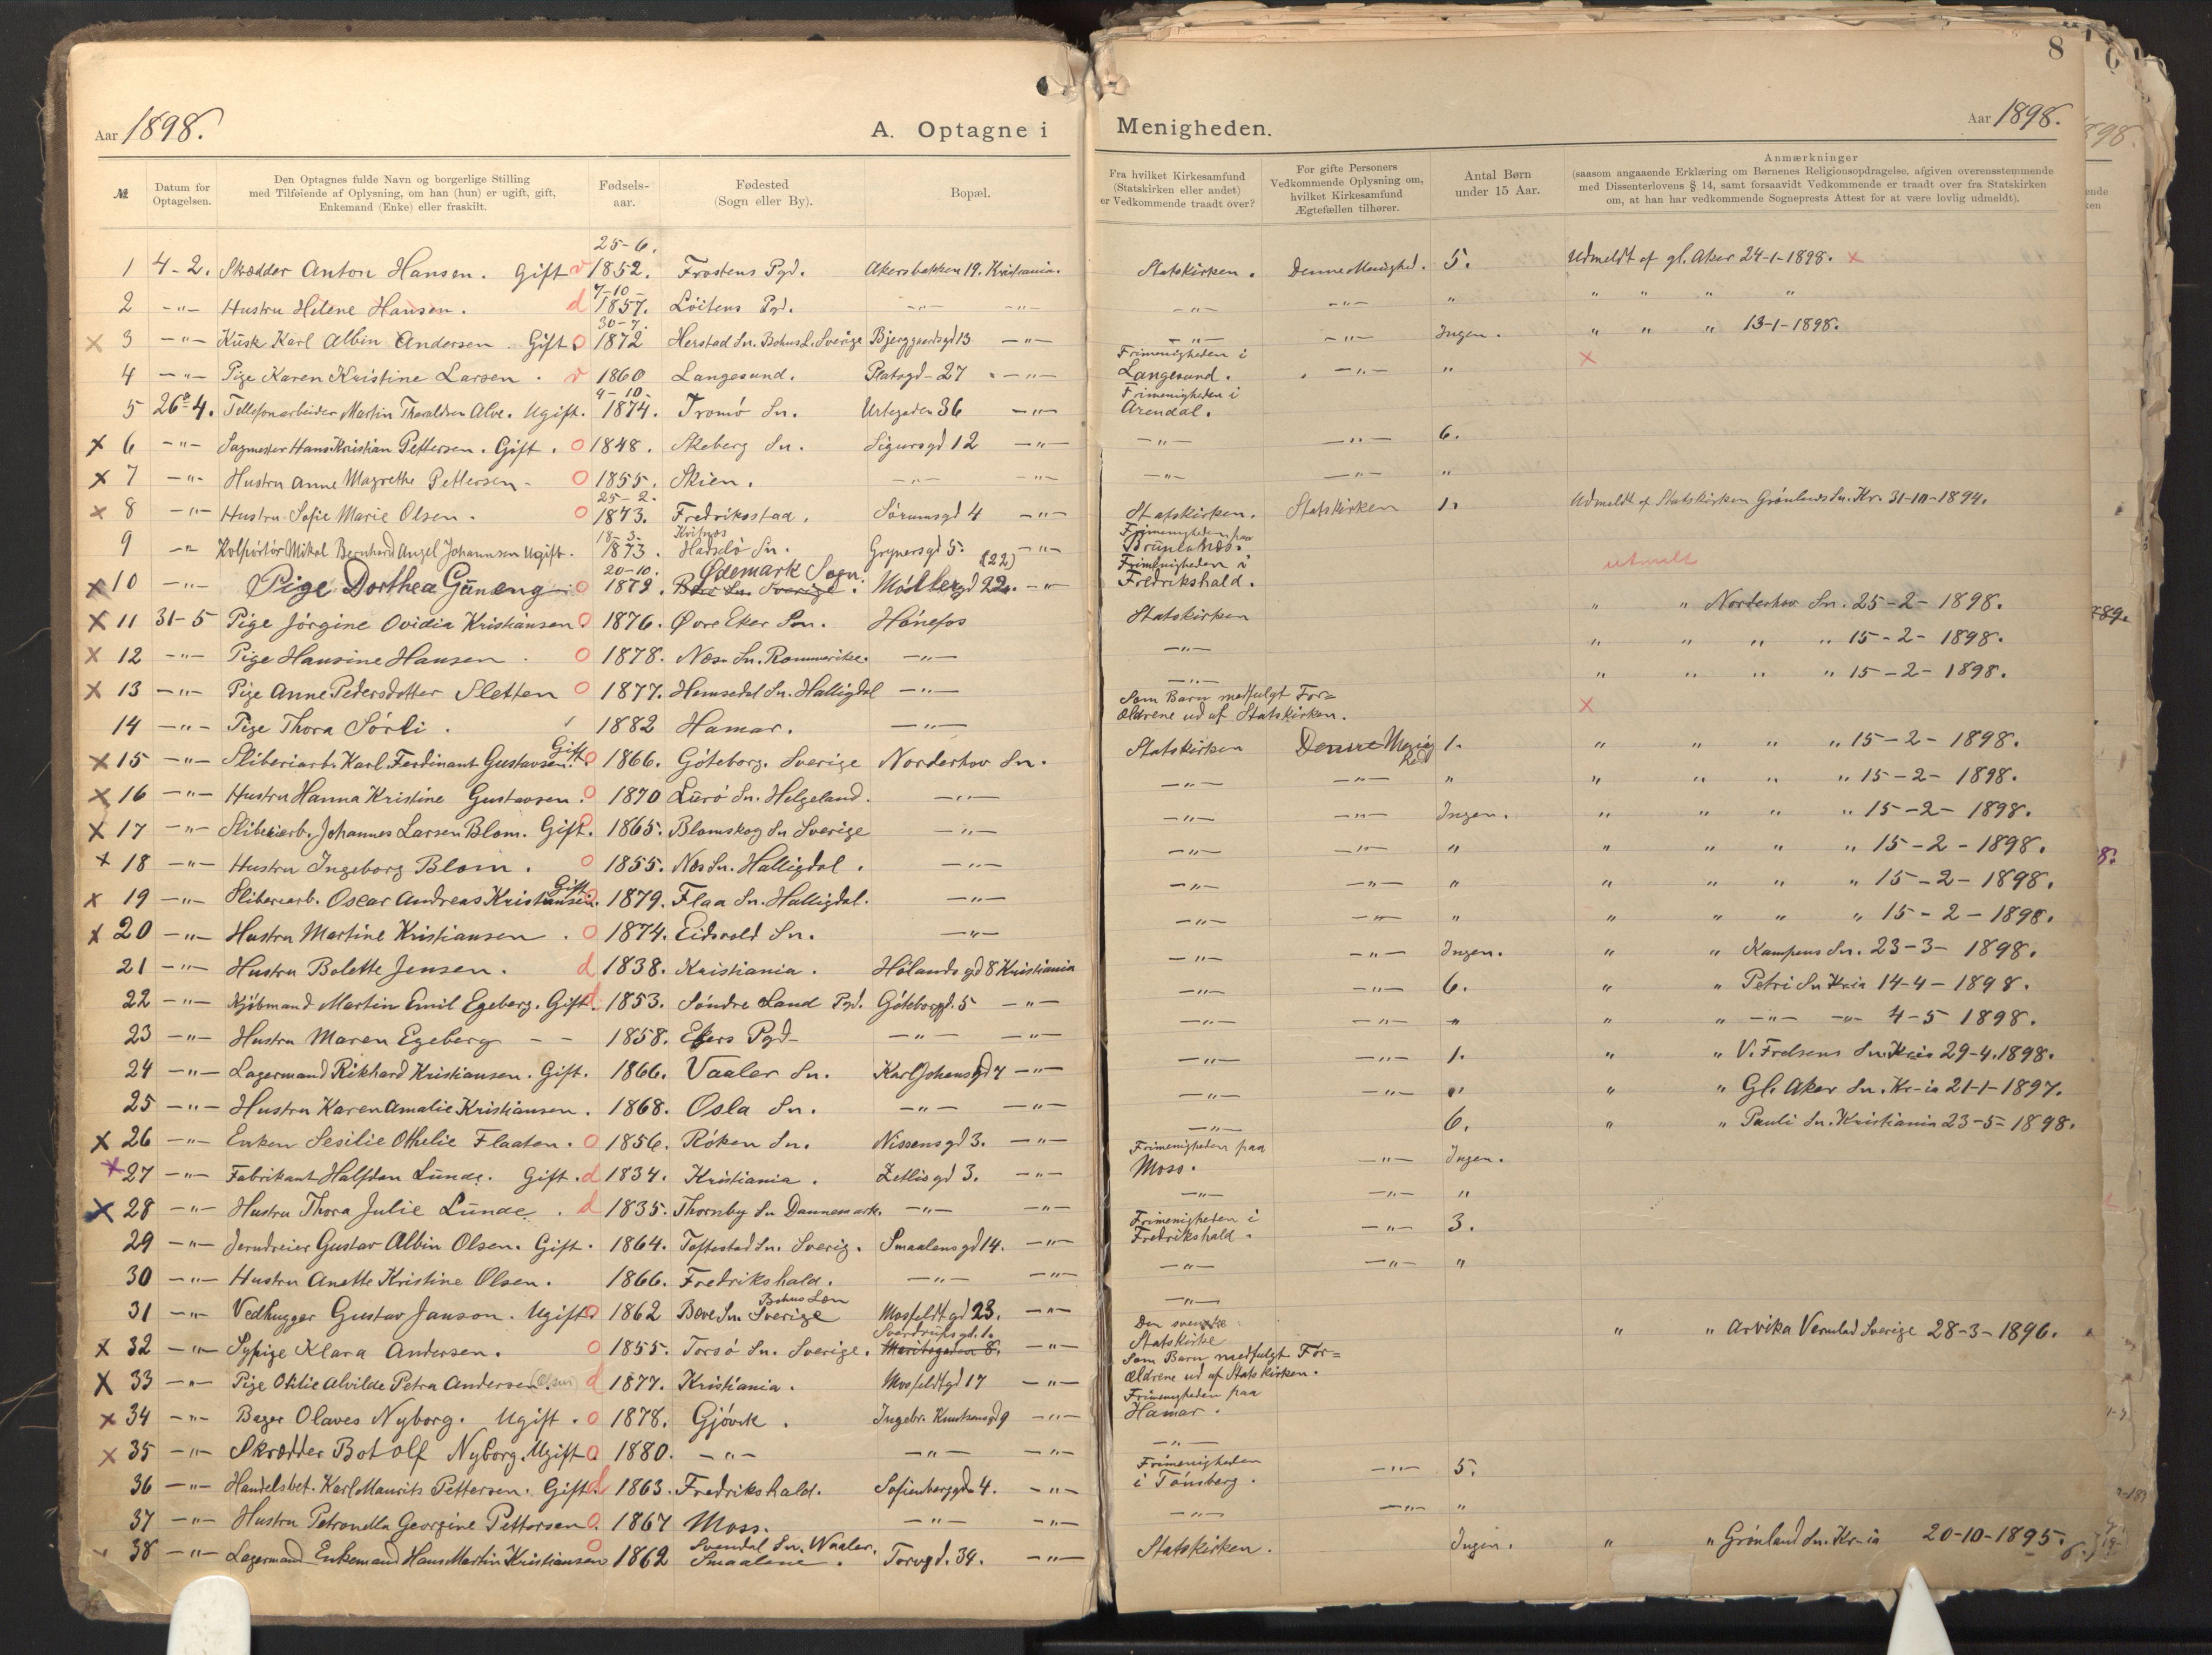 8
Aar 1898.
A. Optagne i Menigheden.
Aar 1898.
№
Datum for Optagelsen.
Den Optagnes fulde Navn og borgerlige Stilling
med Tilføiende af Oplysning, om han (hun) er ugift, gift,
Enkemand (Enke) eller fraskilt.
Fødsels-
aar.
Fødested
(Sogn eller By).
Bopæl.
Fra hvilket Kirkesamfund
(Statskirken eller andet)
er Vedkommende traadt over?
For gifte Personers
Vedkommende Oplysning om,
hvilket Kirkesamfund
Ægtefællen tilhører.
Antal Børn
under 15 Aar.
Anmærkninger
(saasom angaaende Erklæring om Børnenes Religionsopdragelse, afgiven overensstemmende
med Dissenterlovens § 14, samt forsaavidt Vedkommende er traadt over fra Statskirken
om, at han har vedkommende Sogneprests Attest for at være lovlig udmeldt).
1 4-2. Skrædder Anton Hansen. Gift 25-6. 1852. Frostens Pgd. Akersbakken 19. Kristiania. Statskirken. Denne Menighed. 5. Udmeldt af gl. Aker 24-1-1898. x
2 -"- Hustru Helene Hansen. d 7-10- 1857. Löitens Pgd. -"- -"- -"- -"- " " " " "
x 3 -"- Kusk Karl Albin Andersen. Gift. o 30-7. 1872 Herstad Sn. Bohus L. Sverige Bjerggaardsgd 13 -"- -"- -"- Ingen. " " " 13-1-1898.
4 -"- Pige Karen Kristine Larsen. 1860 Langesund. Platogd-27 -"- Frimenigheden i Langesund. -"- " x
5 26-4. Tellefonarbeider Martin Tharaldsen Alve. Ugift. 4-10- 1874. Tromö Sn. Urtegaden 36 -"- Frimenigheden i Arendal.
x 6 -"- Sagmester Hans Kristian Pettersen. Gift. o 1848. Skeberg Sn. Sigursgd 12 -"- -"- -"- 6.
x 7 -"- Hustru Anne Magrethe Pettersen- o 1855. Skien. -"- -"- -"- -"- "
x 8 -"- Hustru Sofie Marie Olsen. o 25-2. 1873. Fredriksstad. Sörumsgd 4 -"- Statskirken. Statskirken 1. Udmeldt af Statskirken Grönlands Sn. Kr. 31-10-1894.
9 -"- Kolportör Mikal Bernhard Angel Johannsen Ugift. 18-3- 1873. Hadselö Sn. Grynersgd 5. -"- Frimenigheden paa
x 10 -"- Pige Dorthea Güneng o 20-10. 1872. Ødemark Sogn. (22) -"- Frimenigheden i Fredrikshald. utmelt
x 11 31-5 Pige Jörgine Ovidia Kristiansen o 1876. Øvre Eker Sn. Hönefos Statskirken " " Norderhov Sn. 25-2-1898.
x 12 -"- Pige Hansine Hansen. o 1878. Næs Sn. Rommerike. -"- -"- " " " " 15-2-1898.
x 13 -"- Pige Anne Pedersdotter Sletten o 1877. Hemsedal Sn. Halligdal -"- -"- " " " " 15-2-1898.
14 -"- Pige Thora Sörli. 1882 Hamar. -"- Som Barn medfulgt For= ældrene ud af Statskirken. x
x 15 -"- Sliberiarb. Karl Ferdinant Gustavsen. Gift. o 1866. Göteborg. Sverige Norderhov Sn. Statskirken Denne Menighed 1. " " " " 15-2-1898.
x 16 -"- Hustru Hanna Kristine Gustavsen. o 1870 Lurö Sn. Helgeland. -"- -"- -"- " " " " " 15-2-1898.
x 17 -"- Sliberiarb. Johannes Larsen Blom. Gift. 1865. Blomskog Sn Sverige -"- -"- -"- Ingen. " " " " 15-2-1898.
x 18 -"- Hustru Ingeborg Blom. o 1855. Næs Sn. Halligdal. -"- -"- -"- " " " " " 15-2-1898.
x 19 -"- Sliberiarb. Oscar Andreas Kristiansen. Gift o 1879. Flaa Sn. Halligdal. -"- -"- -"- " " " " " 15-2-1898.
x 20 -"- Hustru Martine Kristiansen. o 1874. Eidsvold Sn. -"- -"- -"- " " " " " 15-2-1898.
21 -"- Hustru Bolette Jensen. d 1838. Kristiania. Hölandsgd 8 Kristiania -"- -"- Ingen. " " Kampens Sn. 23-3-1898.
22 -"- Kjöbmand Martin Emil Egeberg. Gift. d 1853. Söndre Land Pgd. Göteborggd. 5 -"- -"- -"- 6. " " Petri Sn Kria 14-4-1898.
23 -"- Hustru Maren Egeberg - - 1858. Ekers Pgd- -"- -"- -"- -"- " " " -"- -"- 4-5 1898.
24 -"- Lagermand Rikhard Kristiansen. Gift. 1866. Vaaler Sn. Karl Johansgd 7 -"- -"- -"- 1. " " V. Frelsens Sn. Kria 29-4.1898.
25 -"- Hustru Karen Amalie Kristiansen. 1868. Oslo Sn. -"- -"- -"- -"- " " " Gl. Aker Sn. Kr-ia 21-1-1897.
x 26 -"- Enken Sesilie Othelie Flaaten. o 1856. Röken Sn. Nissensgd 3. -"- -"- 6. " " Pauli Sn. Kristiania 23-5-1898.
x 27 -"- Fabrikant Halfdan Lunde. Gift. d 1834. Kristiania. Zetlisgd 3. -"- Frimenigheden paa Moss. -"- Ingen.
x 28 -"- Hustru Thora Julie Lunde. d 1835. Thornby Sn Dannemark. -"- -"- -"- -"- "
29 -"- Jerndreier Gustav Albin Olsen. Gift. 1864. Toftestad Sn. Sverig. Smaalensgd 14. -"- Frimenigheden i Fredrikshald. -"- 3.
30 -"- Hustru Anette Kristine Olsen. 1866. Fredrikshald. -"- -"- -"- -"- "
31 -"- Vedhugger Gustav Janson. Ugift. o 1862 Bave Sn. Bohus Len Sverige Mosfeldtgd 23. -"- -"-
x 32 -"- Sypige Klara Andersen. o 1855. Torsö Sn. Sverige. Sverdrupsgd. 1. -"- Den svenske Statskirke " " Arvika Vermlad Sverige 28-3-1896.
x 33 -"- Pige Otilie Alvilde Petra Andersen (Olsen) d 1877. Kristiania. Mosfeldtgd 17 -"- Som Barn medfulgt For= ældrene ud af Statskirken.
x 34 -"- Bager Olaves Nyborg. Ugift. o 1878. Gjövik. Ingebr. Knutsensgd 9 -"- Frimenigheden paa Hamar.
x 35 -"- Skrædder Botolf Nyborg. Ugift. o 1880. -"- -"- -"- -"-
36 -"- Handelsbet. Karl Maurits Pettersen. Gift. d 1863. Fredrikshald. Sofienberggd. 4. -"- Frimenigheden i Tönsberg. -"- 5.
37 -"- Hustru Petronella Georgine Pettersen o. 1867 Moss. -"- -"- -"- -"- "
38 -"- Lagermand Enkemand Hans Martin Kristiansen o 1862 Svendal Sn. Waaler. Smaalene. Torvgd. 34. -"- Statskirken. Ingen. " " Grönland Sn. Kr-ia 20-10-1895.